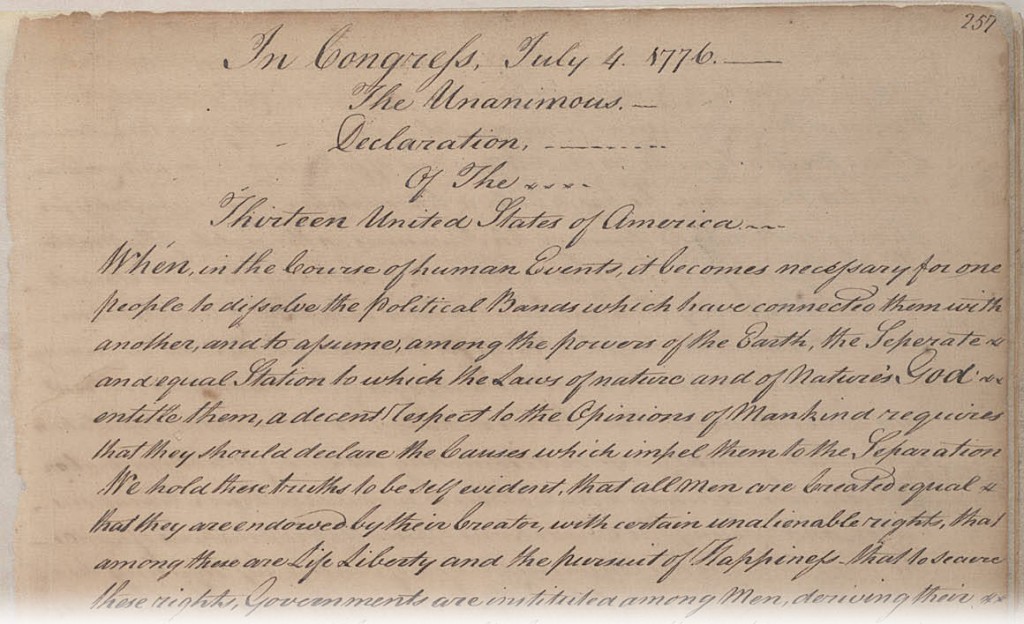 257
In Congress, July 4. 1776.
The Unanimous.
Declaration,
Of The
Thirteen United States of America
When, in the Course of human Events, it becomes necessary for one
people to dissolve the Political Bands which have connected them with
another, and to assume, among the powers of the Earth, the Seperate
and equal Station to which the Laws of nature and of Nature's God
entitle them, a decent respect to the Opinions of Mankind requires
that they should declare the Causes which impel them to the Separation
We hold these truths to be self evident, that all men are Created equal
that they are endowed by their Creator, with certain unalienable rights, that
among these are Life Liberty and the pursuit of Happiness - that to secure
these rights, Governments are instituted among Men, deriving their